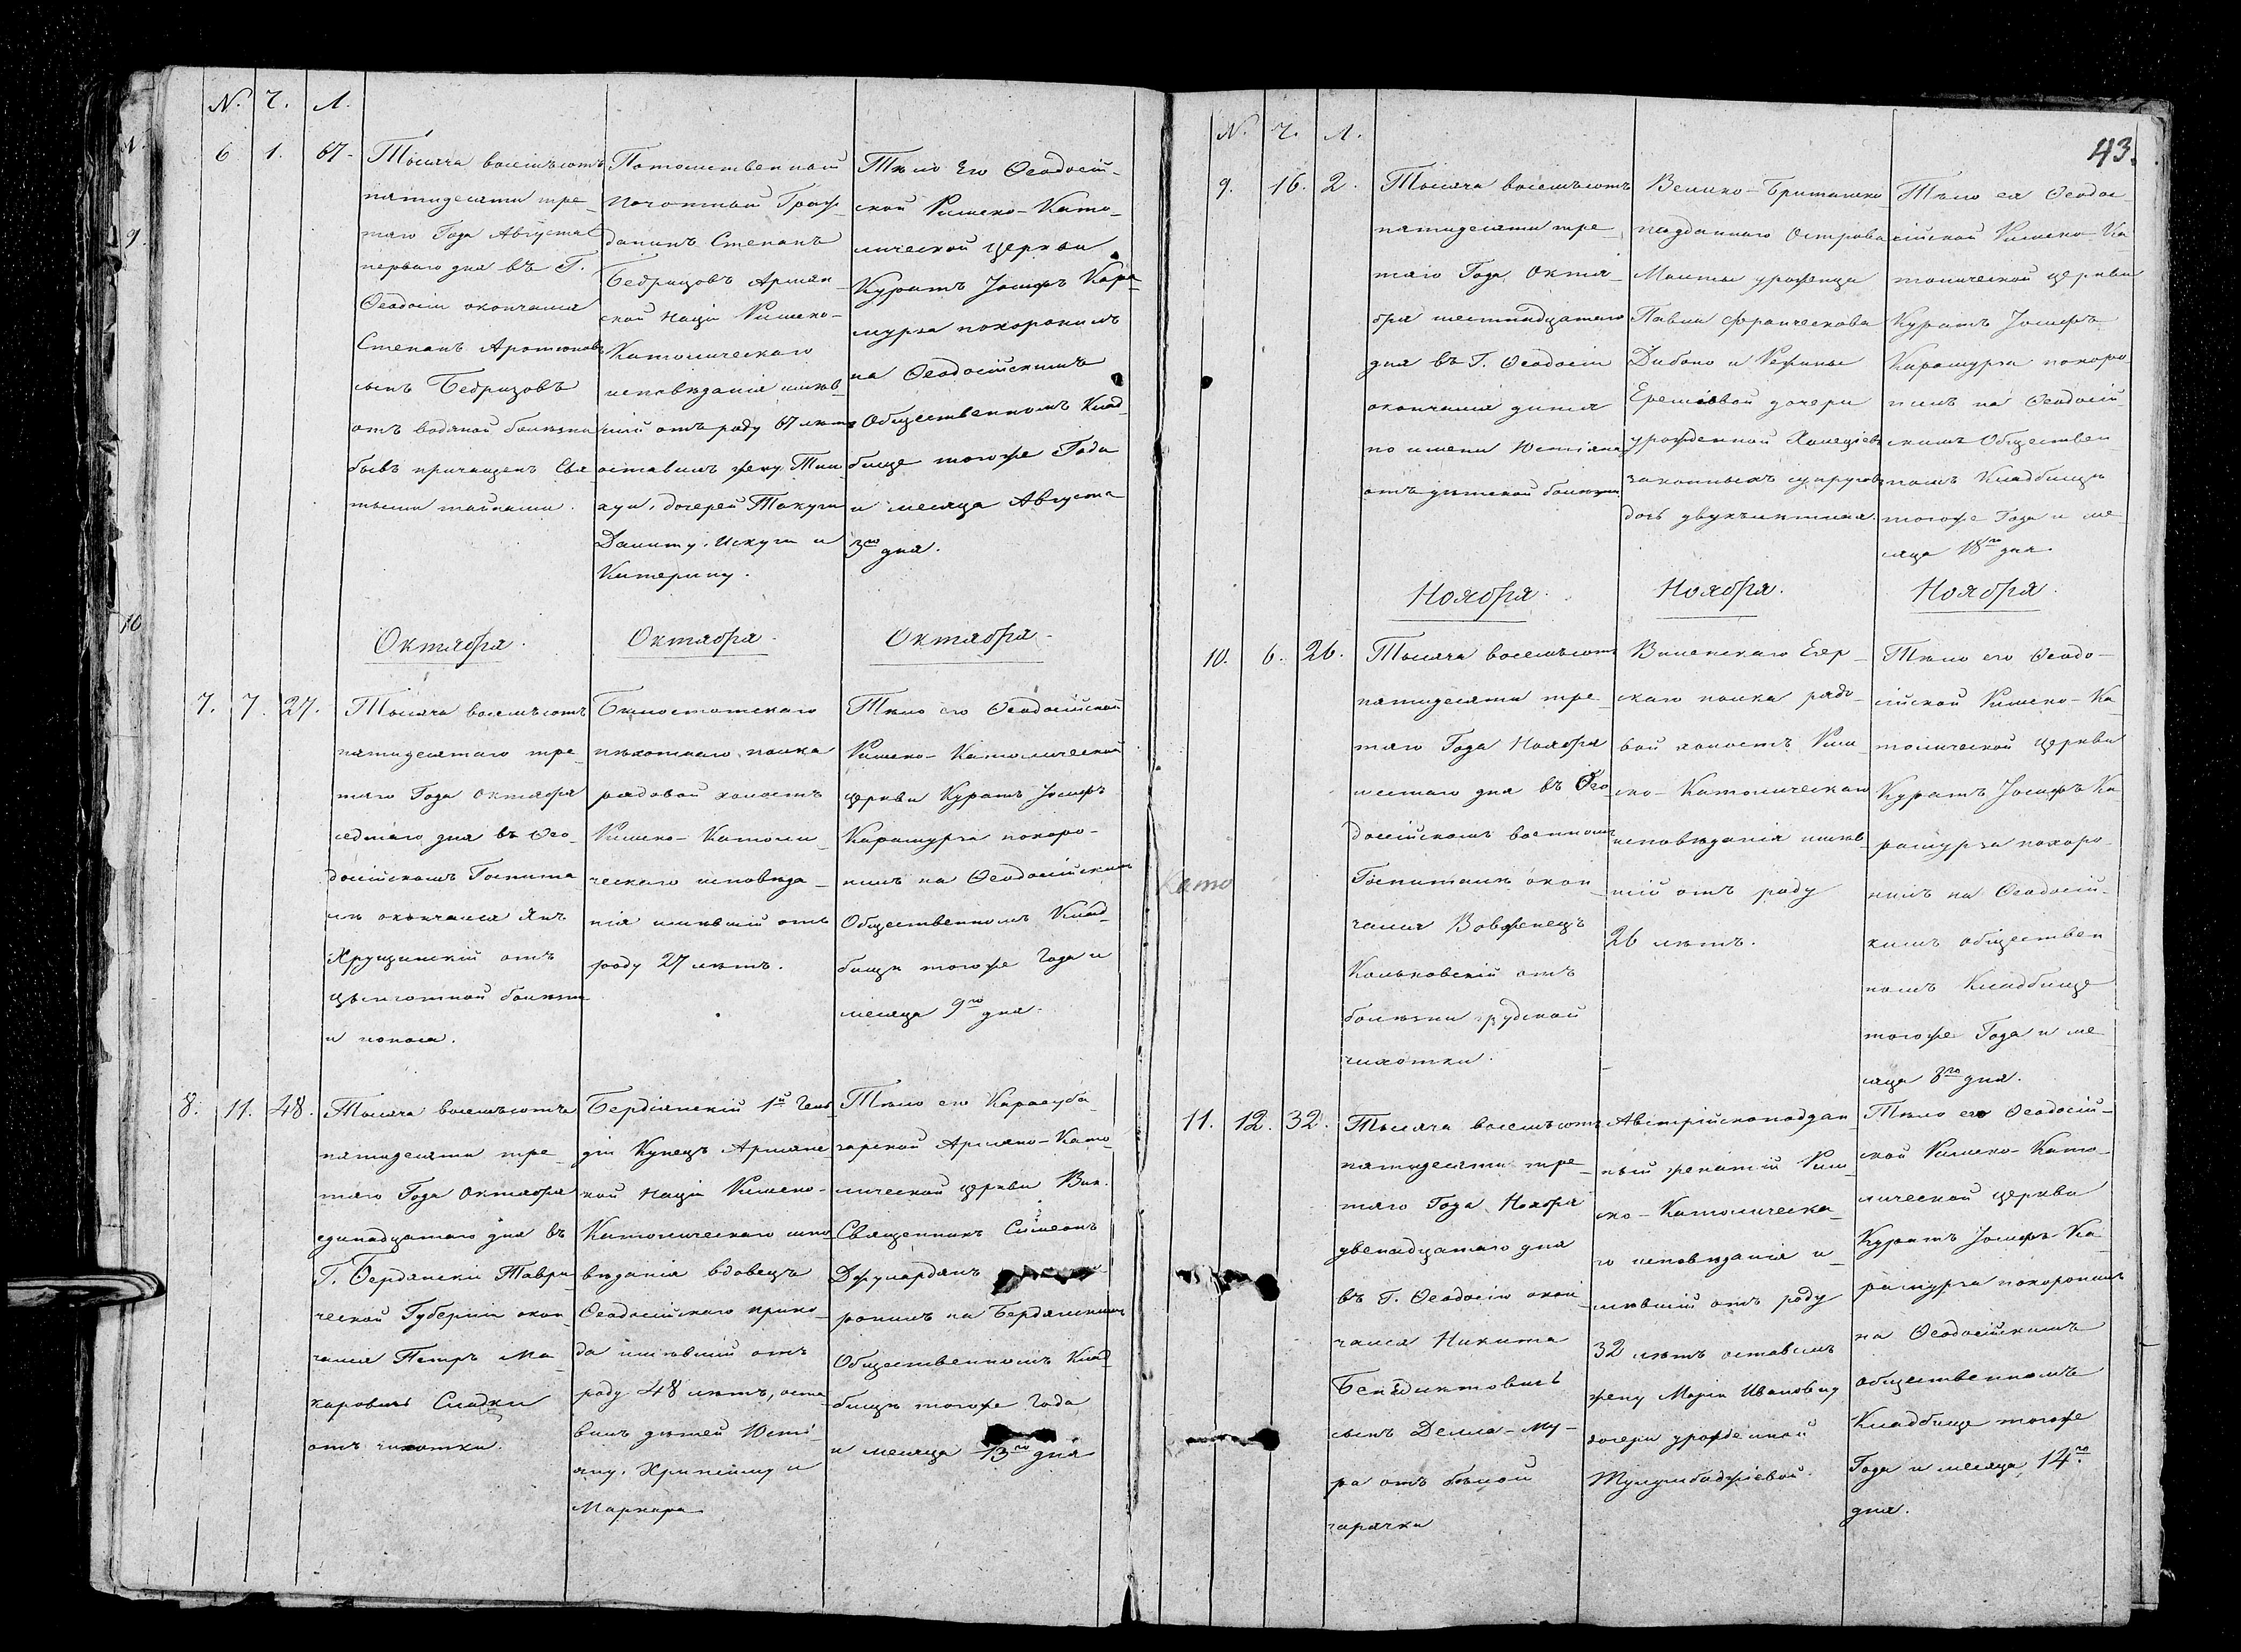 N. Ч. Л.
6 1. 67.
Тысяча восемьсотъ
пятидесяти тре_
тяго Года Августа
перваго дня въ Г.
Ѳеодосіи окончался
Степанъ Аротюновъ
сынъ Бедризовъ
отъ водяной болѣзни
бывъ причащенъ Свя
тыми тайнами.
Потомственный
почотный Граж_
данинъ Степанъ
Бедризовъ Армян_
ской націи Римско-
Католическаго
исповѣданія имѣв_
шій отъ роду 67 лѣтъ
оставилъ жену
дочерей
и
Катерину.
Тѣло Его Ѳеодосій_
ской Римско-Като_
лической Церкви
Куратъ Іосифъ Кара_
мурза похоронилъ
на Ѳеодосійскимъ
Общественномъ Клад_
бище тогоже Года
и месяца Августа
3го дня.
Октября.
Октября.
Октября.
7. 7. 27.
Тысяча восемьсотъ
пятидесятаго тре_
тяго Года Октября
седмаго дня въ Ѳео_
досійскомъ Госпита
лѣ окончался Янъ
Хрущинскій отъ
цынготной болѣзни
и поноса.
Бѣлостотскаго
пѣхотнаго полка
рядовой холостъ
Римско-Католи_
ческаго исповѣда_
нія имѣвшій отъ
роду 27 лѣтъ.
Тѣло его Ѳеодосійской
Римско-Католической
церкви Куратъ Іосифъ
Карамурза похоро-
нилъ на Ѳеодосійскимъ
Общественномъ Клад_
бищѣ тогоже Года и
месяца 9го дня.
8. 11. 48.
Тысяча восемьсотъ
пятидесяти тре_
тяго Года Октября
единадцатаго дня въ
Г. Бердянски Таври
ческой Губерніи окон_
чался Петръ Ма_
каровичъ Сладки
отъ чихотки.
Бердіянскій 1й Гиль
діи Купецъ Армянс
кой націи Римско-
Католическаго испо
вѣданія вдовецъ
Ѳеодосійскаго прихо_
да имѣвшій отъ
роду 48 лѣтъ, оста_
вилъ дѣтей Юсті_
яну, Хрипсиму и
Маркара
Тѣло его Карасуба_
зарской Армяно-Като_
лической церкви Вик.
Священникъ Симеонъ
Джулардянъ
ронилъ на Бердянскимъ
Общественномъ Клад_
бищѣ тогоже Года
и месяца 13го дня
43.
N. Ч. Л.
9. 16. 2.
Тысяча восемьсотъ
пятидесяти тре_
тяго Года Октя_
бря шестнадцатаго
дня въ Г. Ѳеодосіи
окончался дитя
по имени Юстіяна
отъ дѣтской болѣзни
Велико-Британско
подданнаго Острова
Малты уроженца
Павла Франческова
Дибоно и Режины
Еремѣевой дочери
урожденной
законныхъ супруговъ
дочь двухълѣтняя.
Тѣло ея Ѳеодос_
сійской Римско-Ка
толической церкви
Куратъ Іосифъ
Карамурза похоро_
нилъ на Ѳеодосій_
скимъ Обществен_
номъ Кладбищѣ
тогоже Года и ме_
сяца 18го дня.
Ноября.
Ноября.
Ноября.
10. 6. 26.
Тысяча восемьсотъ
пятидесяти тре_
тяго Года Ноября
шестаго дня въ Ѳео_
досійскомъ военномъ
Госпиталѣ окон_
чался Вовженецъ
Кольковскій отъ
болѣзни грудской
чихотки.
Виленскаго Егер_
скаго полка рядо_
вой холостъ Рим_
ско-Католическаго
исповѣданія имѣв_
шій отъ роду
26 лѣтъ.
Тѣло его Ѳеодо_
сійской Римско-Ка_
толической церкви
Куратъ Іосифъ Ка
рамурза похоро_
нилъ на Ѳеодосій_
кимъ обществен_
номъ Кладбище
тогоже Года и ме_
сяца 8го дня.
Като
11. 12. 32.
Тысяча восемьсотъ
пятидесяти тре_
тяго Года Ноября
двенадцатаго дня
въ Г. Ѳеодосіи окон_
чался Никита
Бенедиктовичъ
сынъ Делла-Му-
ра отъ бѣлой
гарячки
Австрійскоподдан_
ный женатій Рим_
ско-Католическа_
го исповѣданія и_
мѣвшій отъ роду
32 лѣтъ оставилъ
жену Марію Ивановну
дочери урожденной
Тулумбаджіевой.
Тѣло его Ѳеодосій_
ской Римско-Като_
лической церкви
Куратъ Іосифъ Ка_
рамурза похоронилъ
на Ѳеодосійскимъ
общественномъ
Кладбище тогоже
Года и месяца 14го
дня.